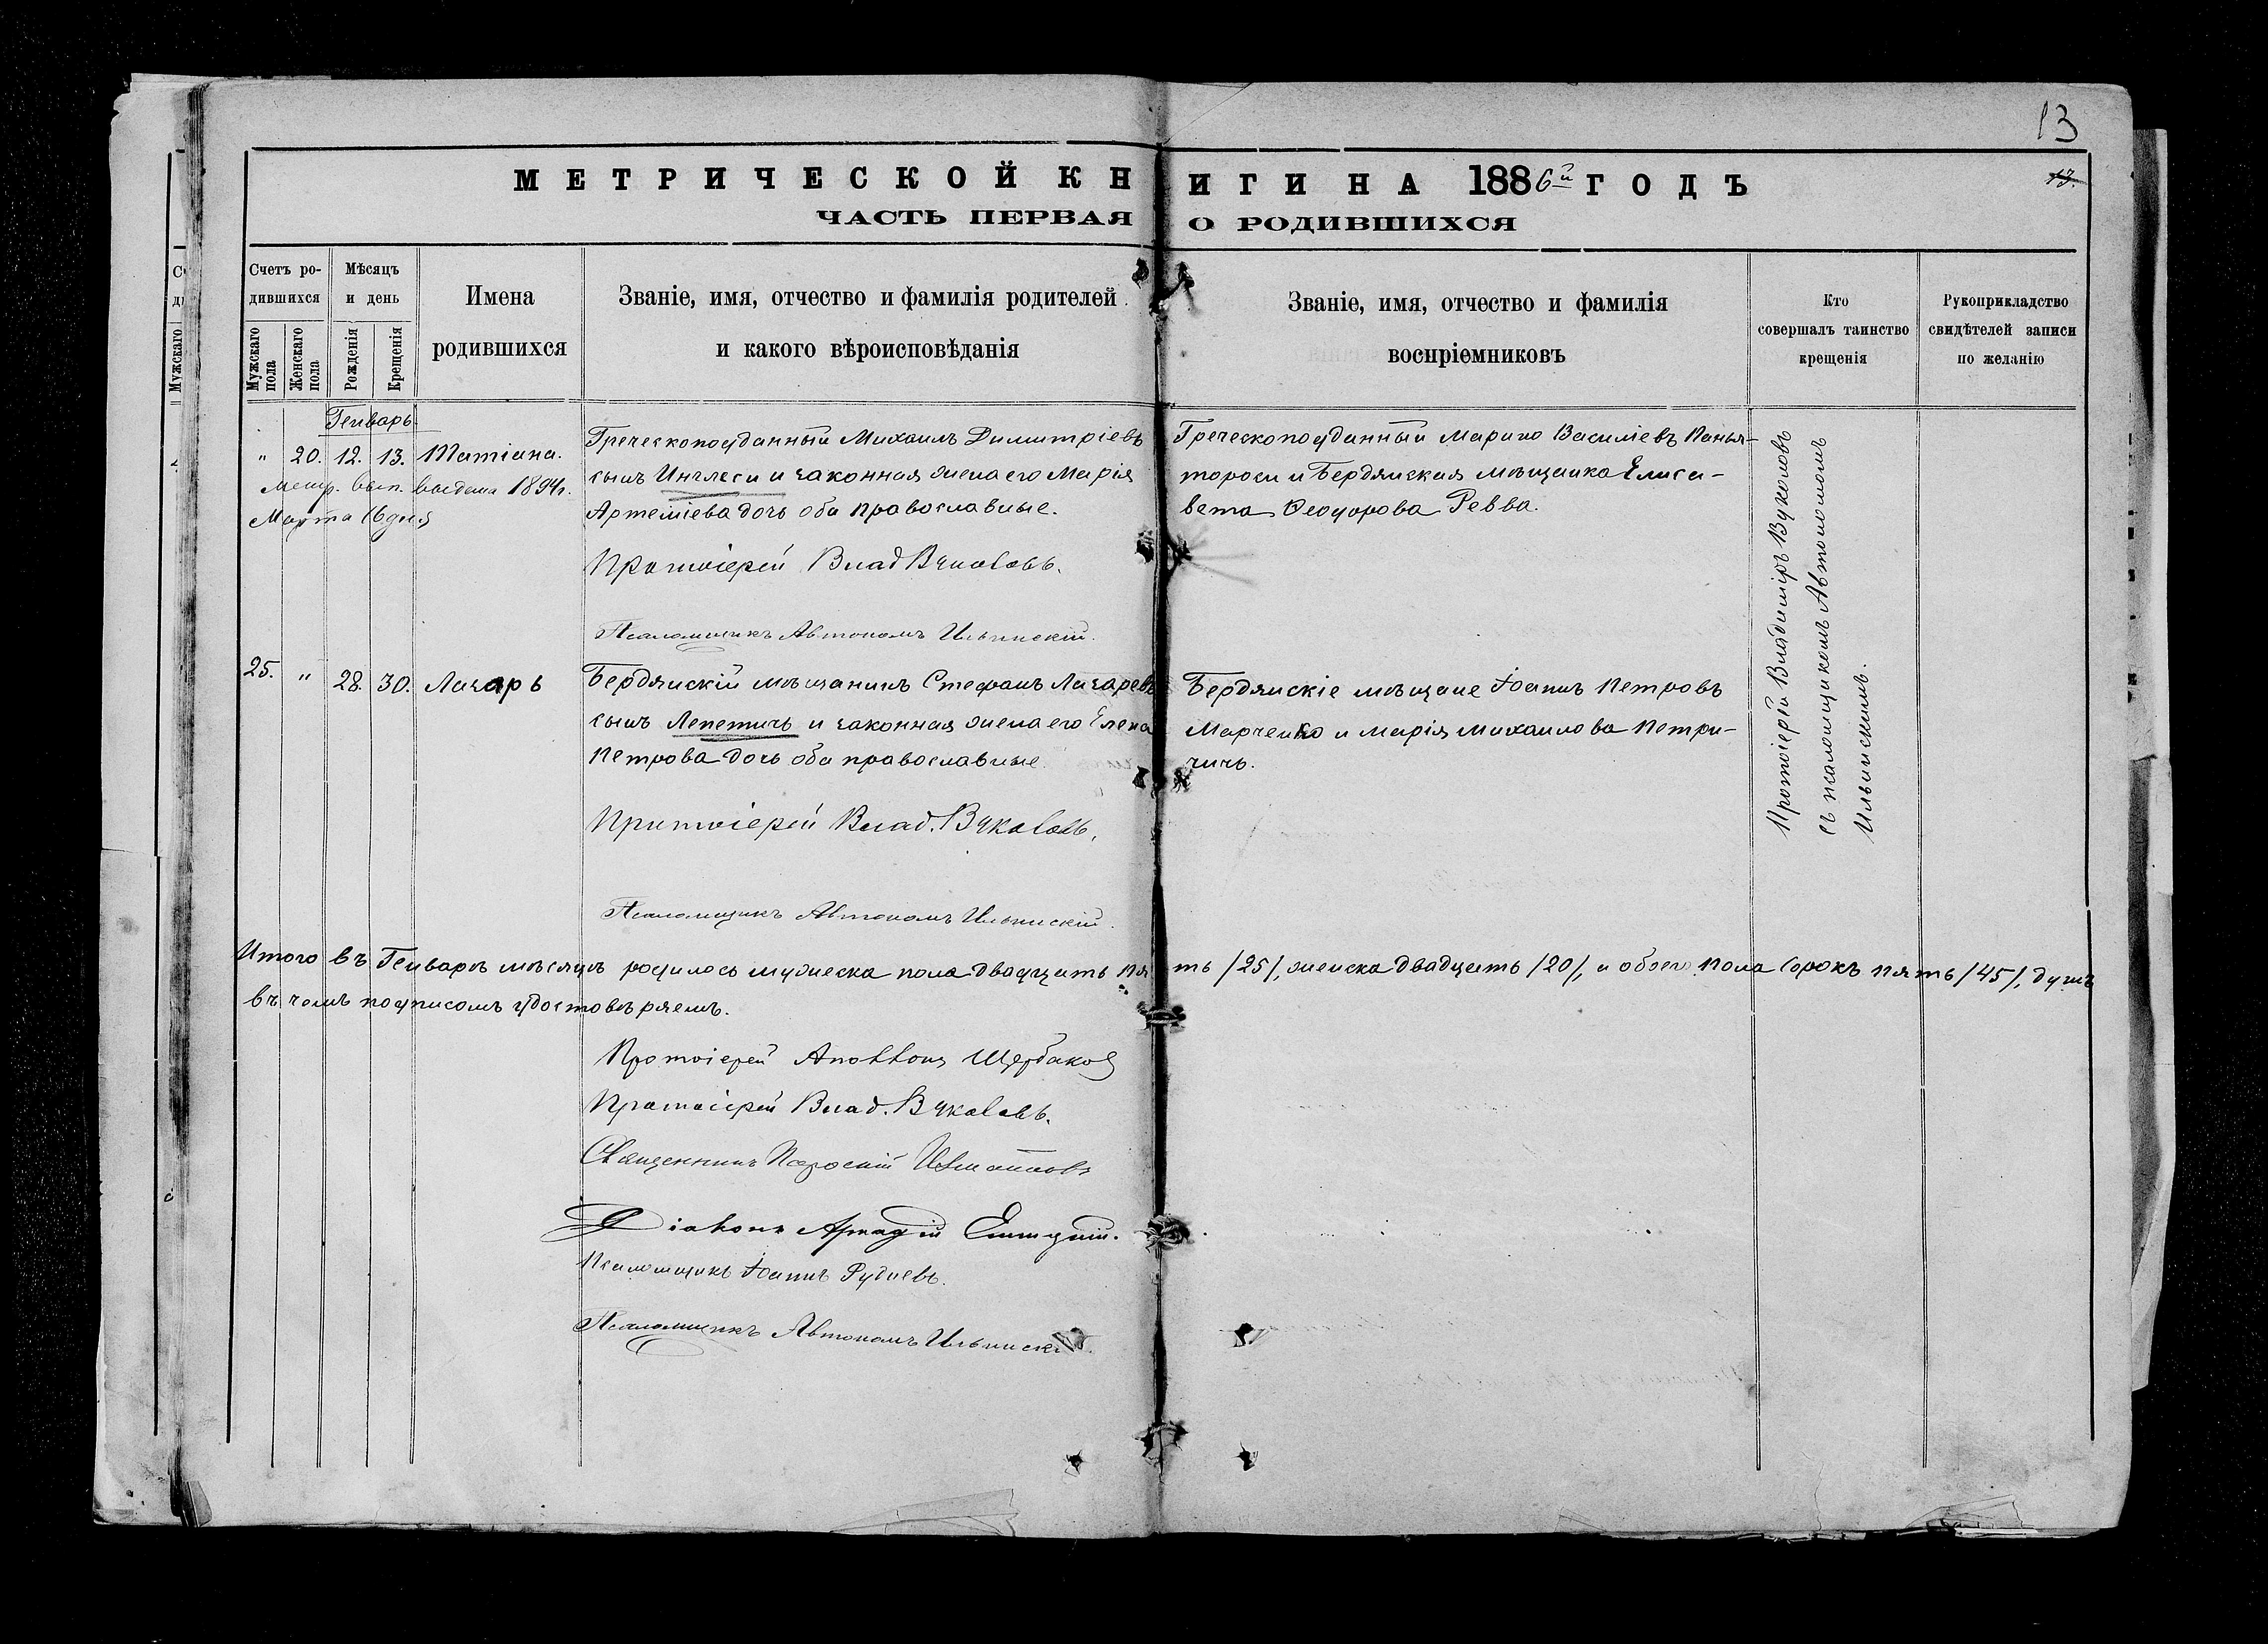 13
МЕТРИЧЕСКОЙ КНИГИ НА 1886й ГОДЪ
13.
ЧАСТЬ ПЕРВАЯ О РОДИВШИХСЯ
Счетъ родившихся
Мужскаго пола
Женскаго пола
Мѣсяцъ и день
Рожденія
Крещенія
Имена родившихся
Званіе, имя, отчество и фамилія родителей
и какого вѣроисповѣданія
Званіе, имя, отчество и фамилія
воспріемниковъ
Кто
совершалъ таинство
крещенія
Рукоприкладство
свидѣтелей записи
по желанію
Генварь
" 20. 12. 13. Татіана.
Метр. вып. выдана 1894г.
Марта 16 дня
Греческоподданный Михаилъ Димитріевъ
сынъ Инглеси и законная жена его Марія
Артеміева дочь оба православные.
Протоіерей Влад Вуколовъ.
Псаломщикъ Автономъ Ильинскій.
Греческоподданный Марино Василіевъ Панья-
тороси и Бердянская мѣщанка Елиса-
вета Ѳеодорова Ревва.
Протоіерей Владиміръ Вуколовъ
съ псаломщикомъ Автономомъ
Ильинскимъ.
25. " 28. 30. Лазарь
Бердянскій мѣщанинъ Стефанъ Лазаревъ
сынъ Лепетичь и законная жена его Елена
Петрова дочь оба православные.
Протоіерей Влад. Вуколовъ.
Псаломщикъ Автономъ Ильинскій.
Бердянскіе мѣщане Іоаннъ Петровъ
Марченко и Марія Михаилова Петри-
чичь.
Итого въ Генварѣ мѣсяцѣ родилось мужеска пола двадцать пять /25/, женска двадцать /20/, и обоего пола сорокъ пять /45/, душъ
въ чемъ подписомъ удостовѣряемъ.
Протоіерей Аполлонъ Щербаковъ
Протоіерей Влад. Вуколовъ.
Священникъ
Діаконъ Аркадій
Псаломщикъ Іоаннъ Рудневъ.
Псаломщикъ Автономъ Ильинскій.